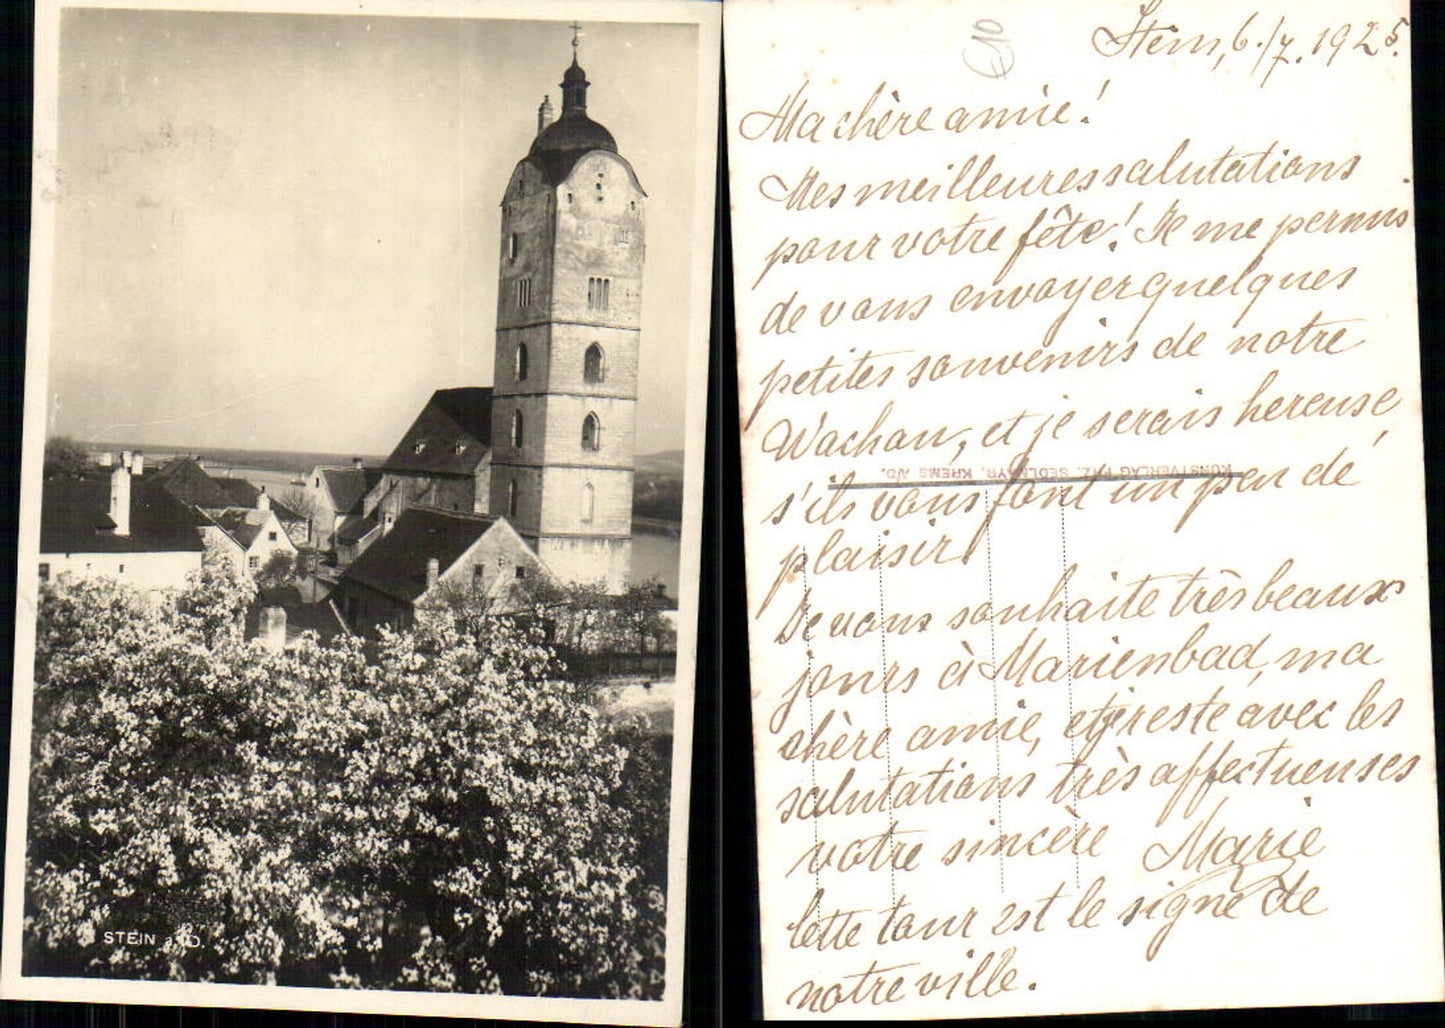 STEIN a. D.
€10
Stein, 6./7. 1925.
Ma chère amie!
Mes meilleures salutations
pour votre fête! Je me permis
de vous envoyer quelques
petites souvenirs de notre
Wachau, et je serais hereuse,
KUNSTVERLAG FRZ. SEDLMAYR, KREMS A/D.
s'ils vous font un peu de
plaisir.
Je vous souhaite très beaux
jours à Marienbad, ma
chère amie, et je reste avec les
salutations très affectueuses
votre sincère Marie
Cette tour est le signe de
notre ville.